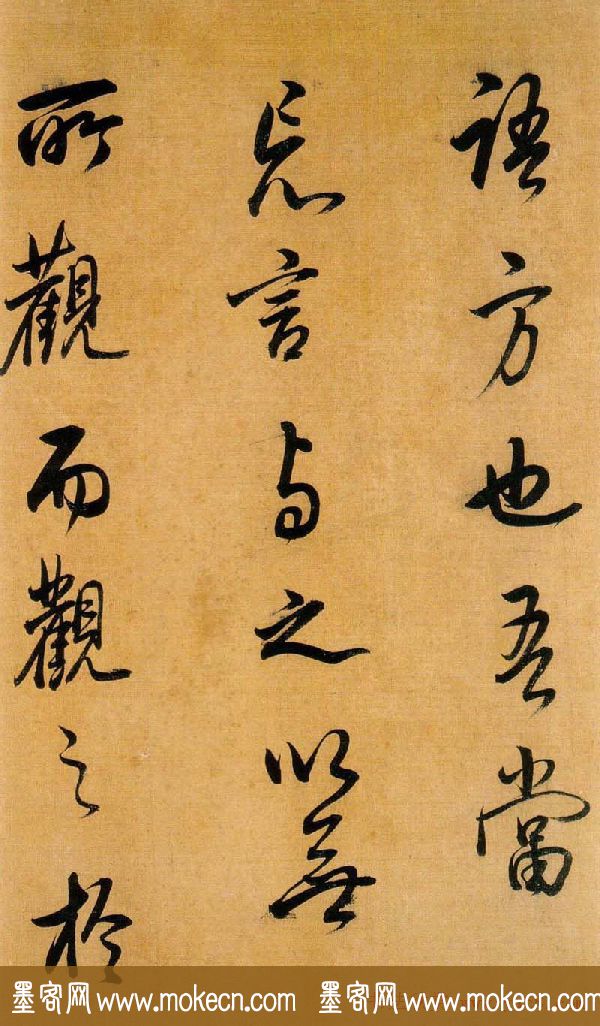 语方也吾當
忘言与之以無
所觀而觀之於
墨客网 www.mokecn.com 墨客网 www.mokecn.com